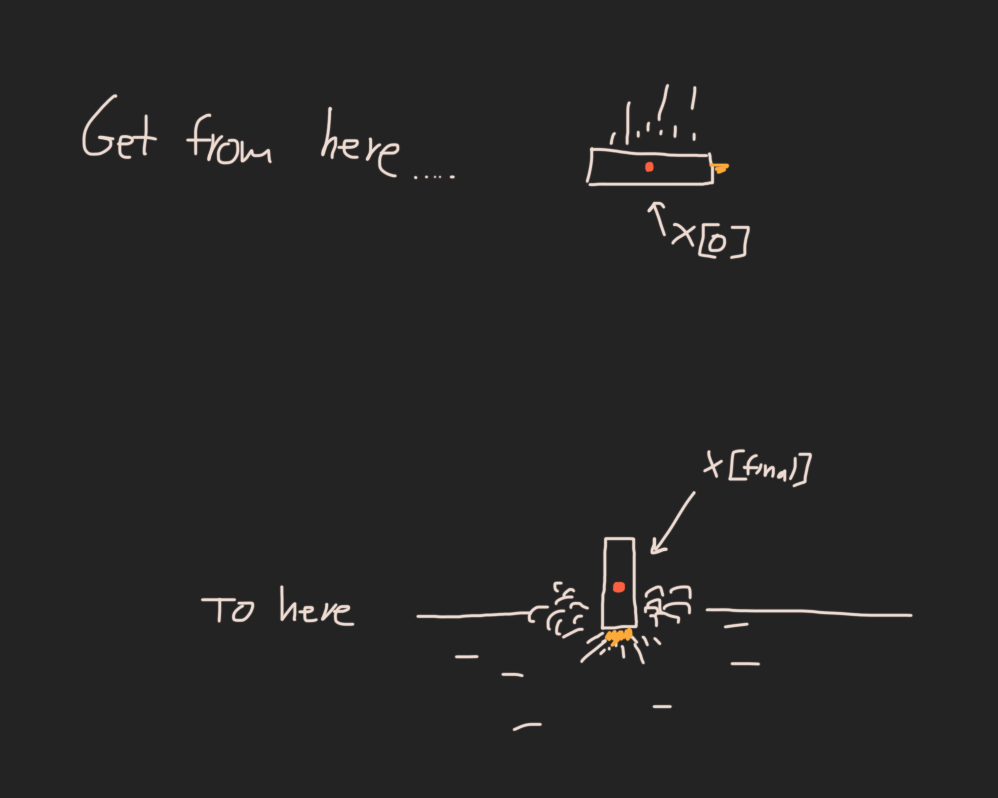 Get from here.....
X[0]
X[final]
To here